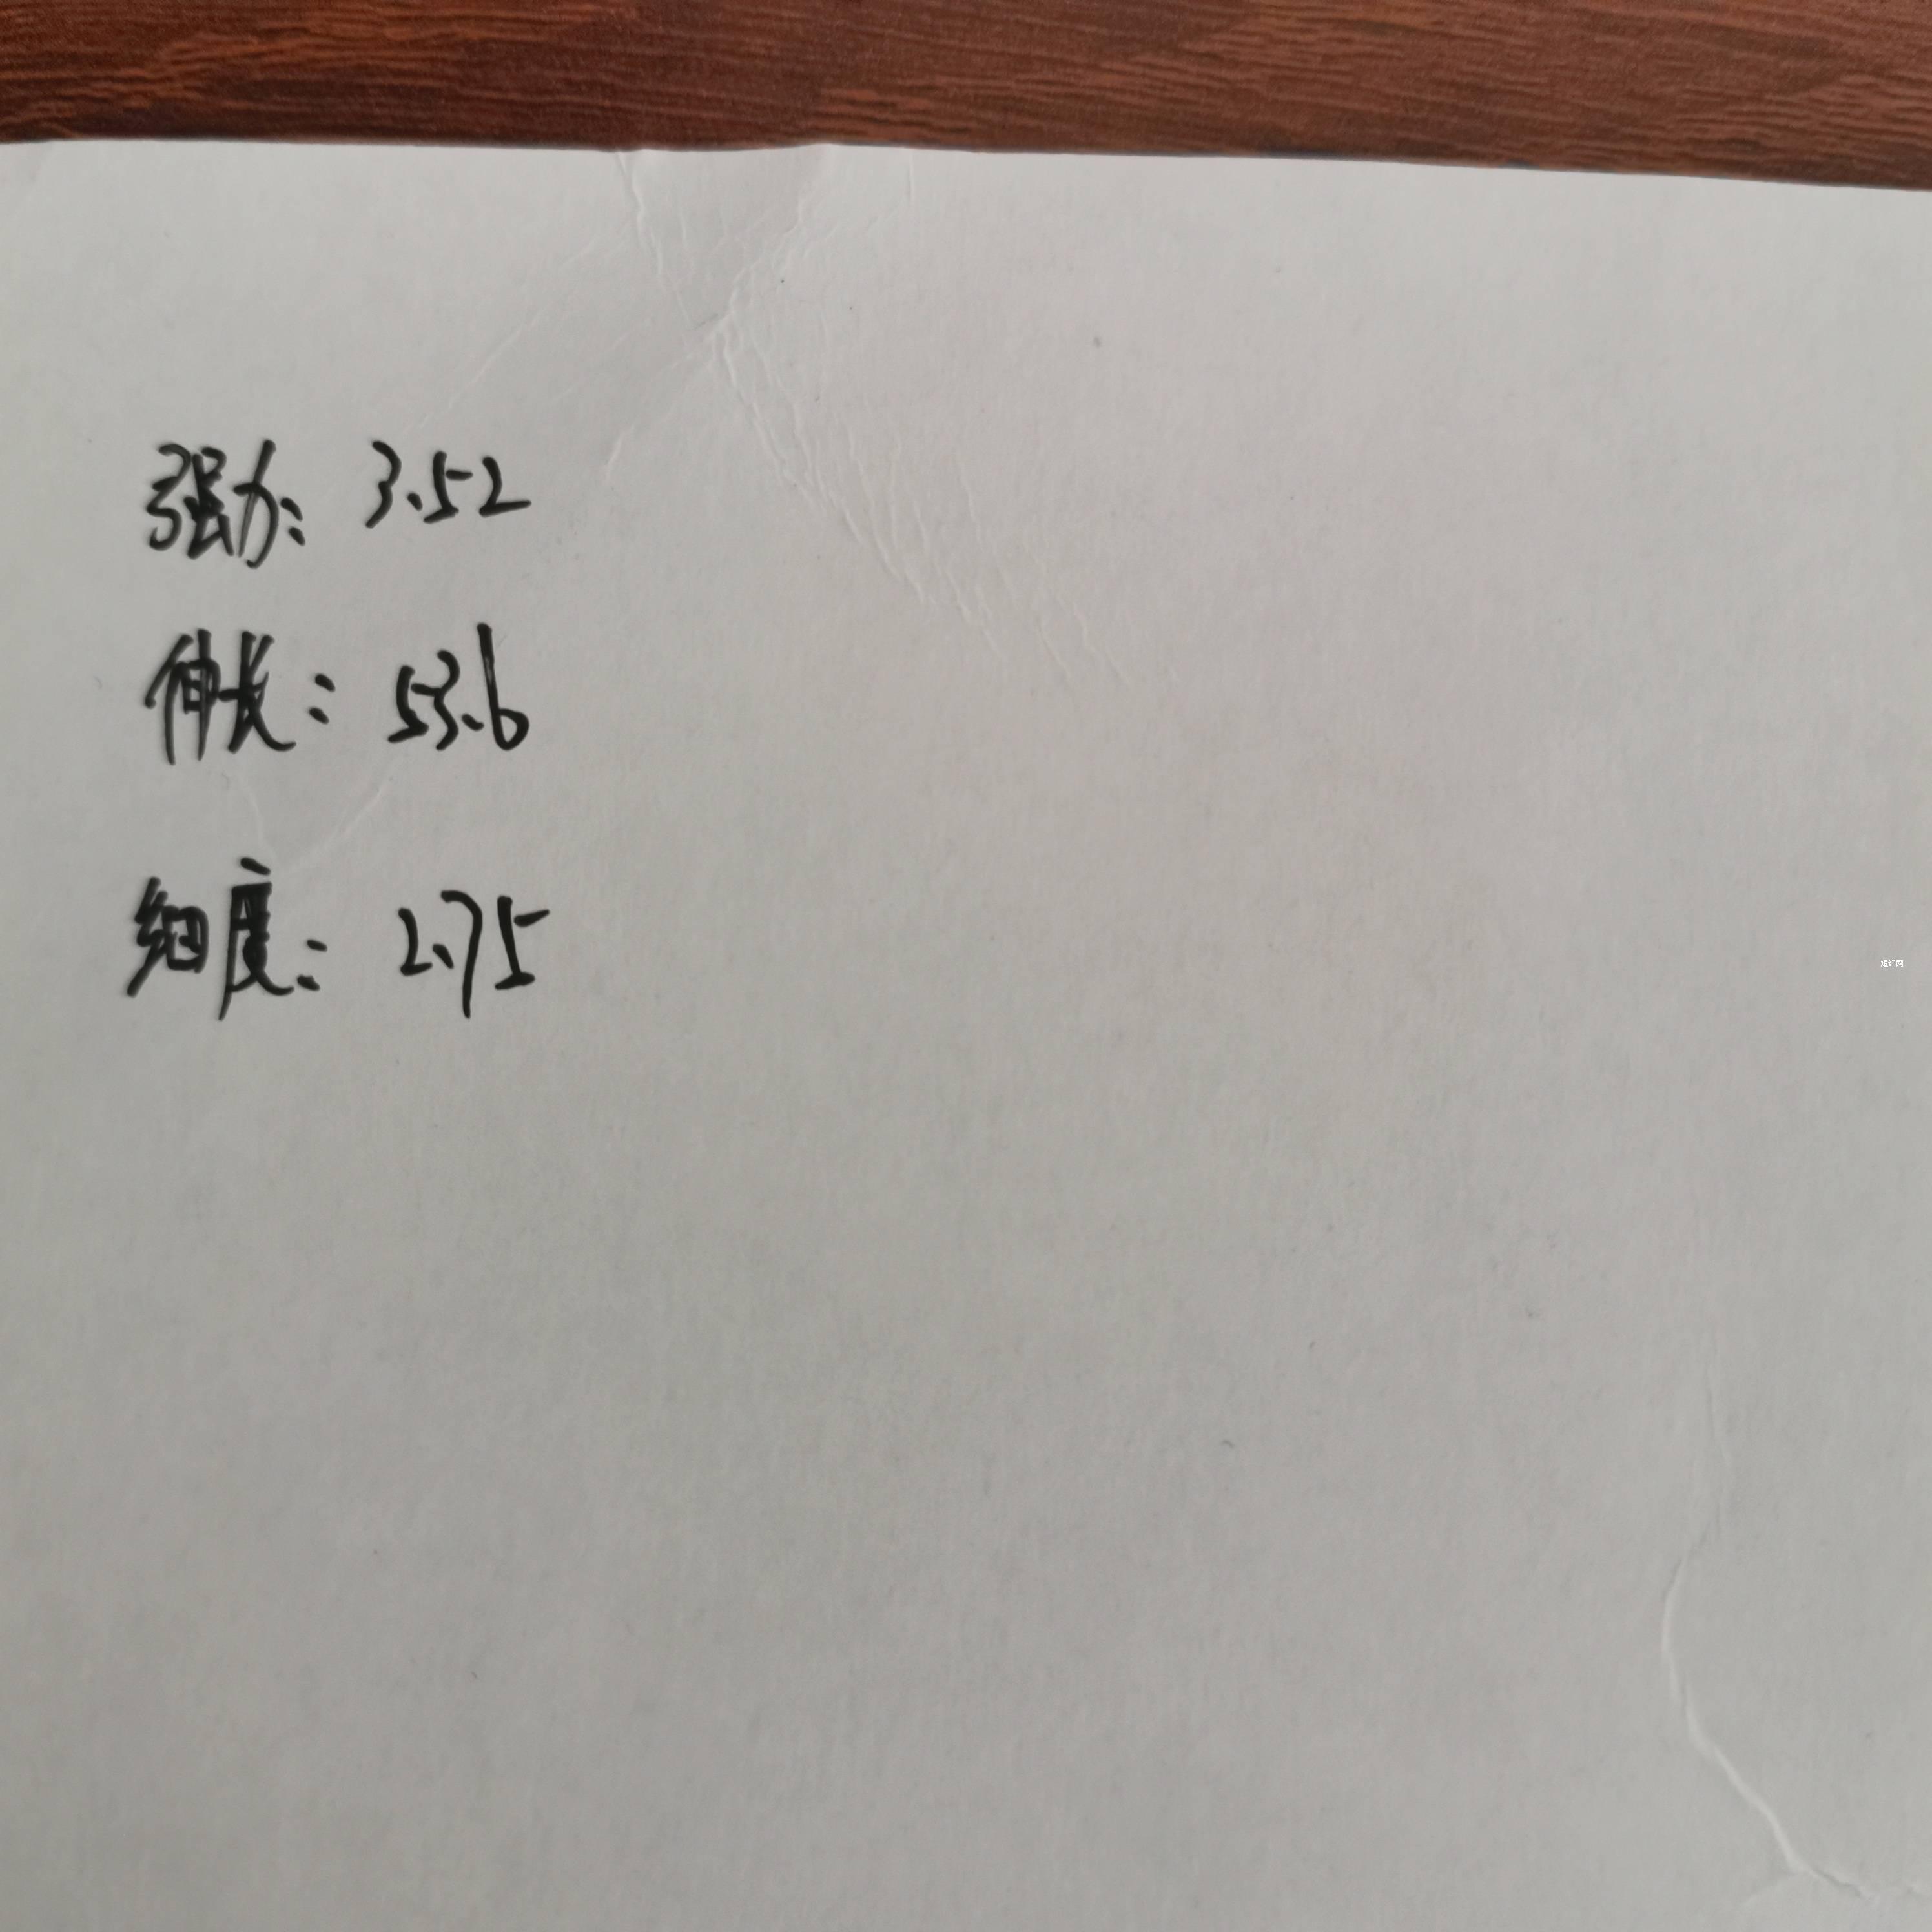 强力：3.52
伸长：53.6
细度：2.75
短纤网